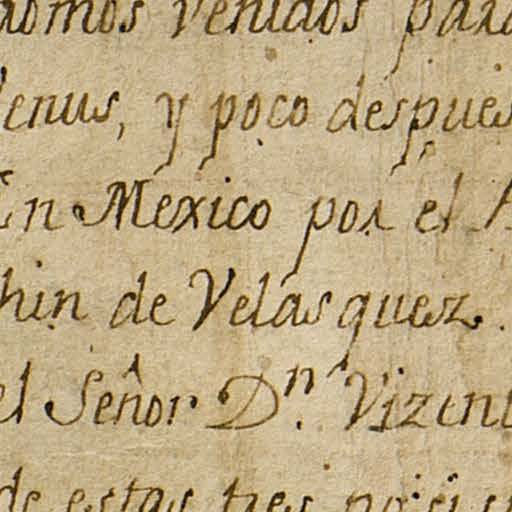 venidos para
Venus, y poco despues
En Mexico por el
hin de Velasquez.
el Señor Dn. Vizen
de estas tres